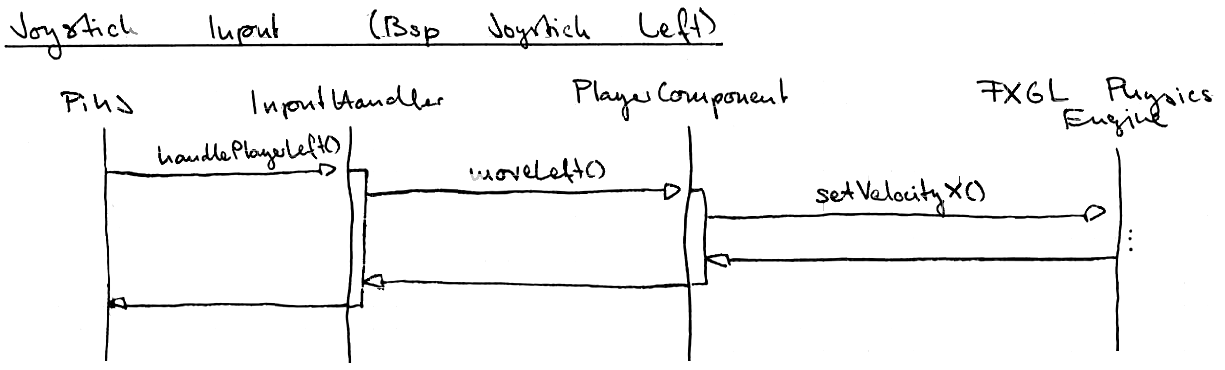 Joystick Input (Bsp Joystick Left)
Pi4J InputHandler PlayerComponent FXGL Physics
Engine
handlePlayerLeft()
moveLeft()
setVelocityX()